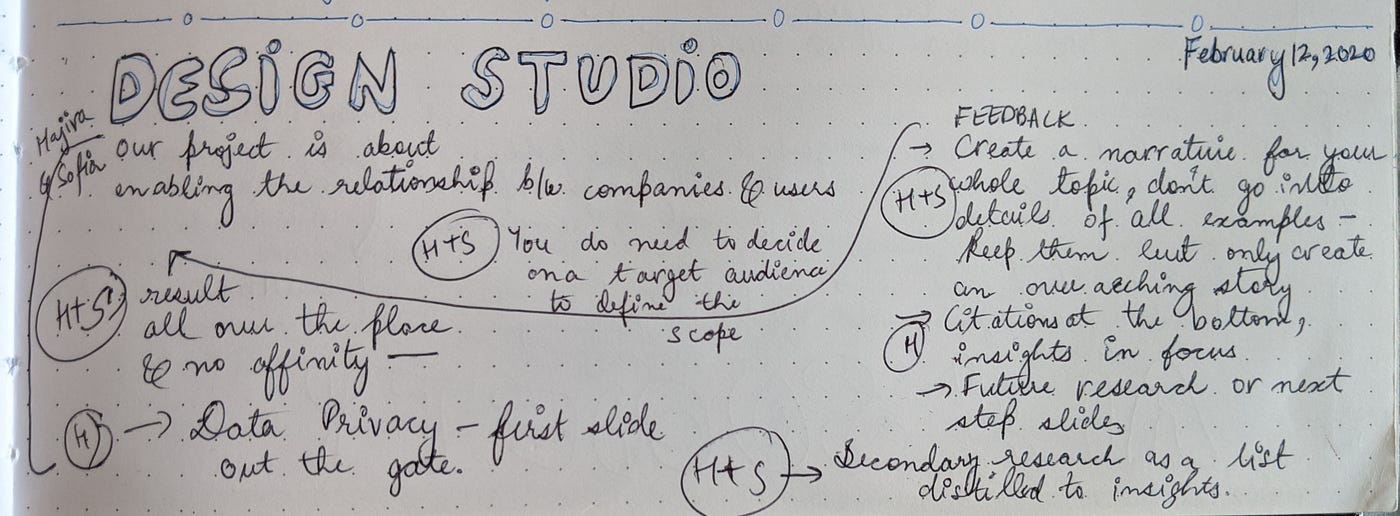 DESIGN STUDIO
February 12, 2020
Hajira
& Sofia
our project is about
enabling the relationship b/w companies & users
H+S
You do need to decide
on a target audience
to define the
scope
H+S
result
all over the place
& no affinity —
H
→ Data Privacy – first slide
out the gate.
FEEDBACK
→ Create a narrative for your
H+S
whole topic, don't go into
details of all examples –
keep them but only create
an over arching story
→ Citations at the bottom,
H
insights in focus
→ Future research or next
step slides
H+S
→ Secondary research as a list
distilled to insights.